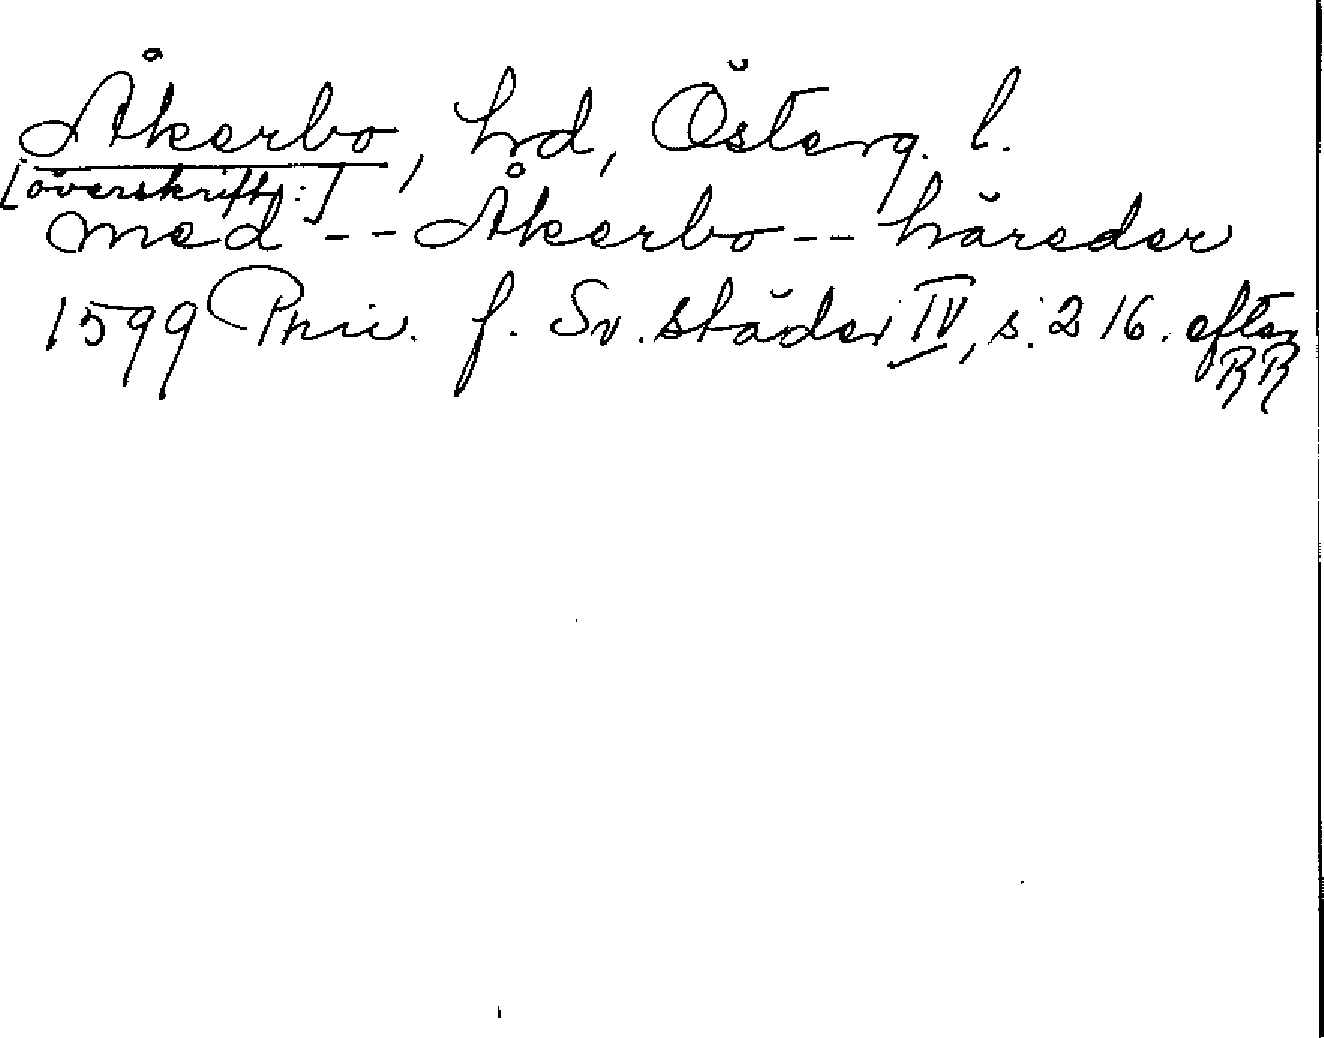 Åkerbo, hd, Österg. l.
[överskrift:]
med -- Åkerbo -- häreder
1599 Priv. f. Sv. städer IV, s. 216. efter
RR